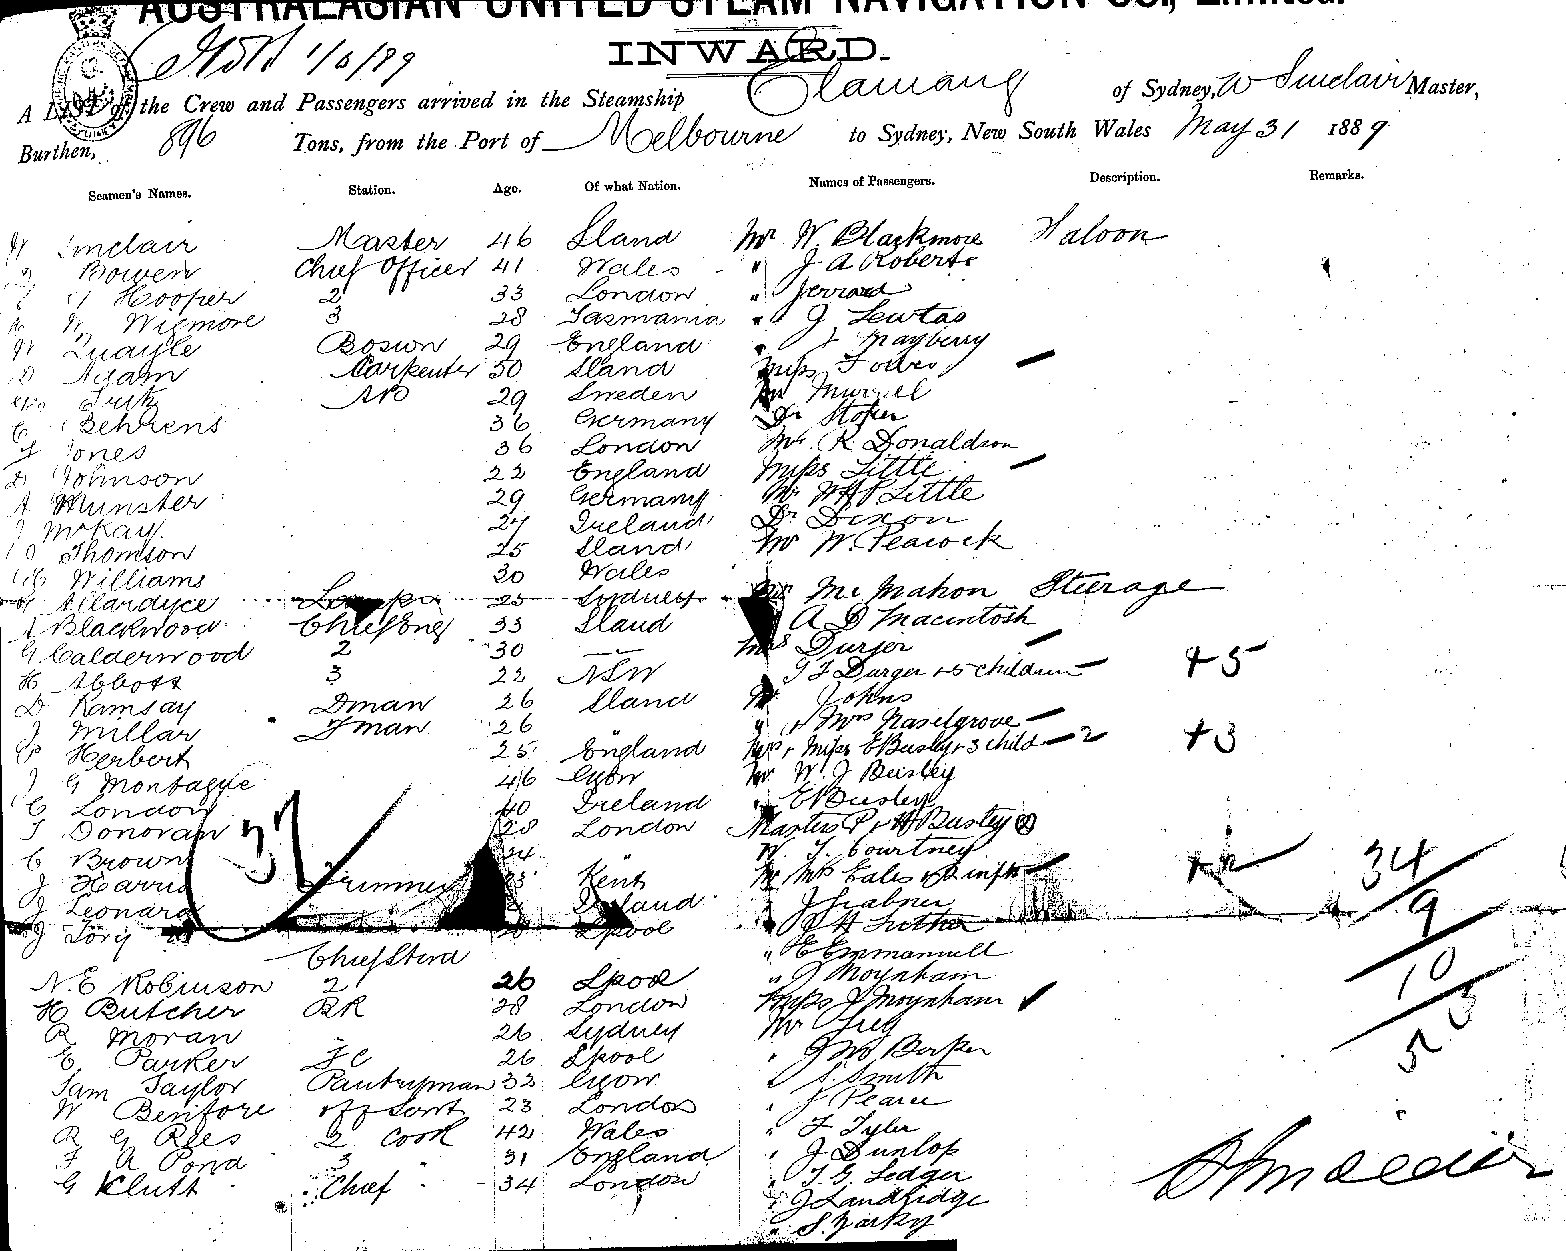 AUSTRALASIAN UNITED STEAM NAVIGATION CO., Limited.
INWARD.
A LIST of the Crew and Passengers arrived in the Steamship Elamang of Sydney, W Sinclair Master,
Burthen, 896 Tons, from the Port of Melbourne to Sydney, New South Wales May 31 1889
Seamen's Names. Station. Age. Of what Nation. Names of Passengers. Description. Remarks.
Sinclair Master 46 Sland Mr W. Blackmore Saloon
Bowen Chief Officer 41 Wales " J A Roberts
Hooper 2 33 London " Jerrard
W Wigmore 3 28 Tasmania " J Lewtas
Quayle Bosun 29 England " J Mayberry
Adam Carpenter 30 Sland Miss
AB 29 Sweden Mr
Behrens 36 Germany Dr
Jones 36 London Mr R Donaldson
Johnson 22 England Miss Little
Munster 29 Germany Mr Little
J McKay 27 Ireland Dr Dixon
Thomson 25 Sland Mr W. Peacock
Williams 30 Wales
Allardyce Lamps 25 Sydney Mr McMahon Steerage
A Blackwood Chief Eng 33 Sland A D Macintosh
G Calderwood 2 30 — Mrs
H Abbott 3 22 NSW + 5 children + 5
D Ramsay Dman 26 Sland Mr Johns
J Millar Fman 26 " Mrs Haselgrove
P Herbert 25 England Miss E Busley + 3 child 2 + 3
J G Montague 46 Mr W. J Busley
C London 40 Ireland " E Busley
T Donovan 28 London Masters P + H Busley (2)
C Brown 24 W. T. Courtney
37
J Harris Trimmer Kent Mr Mrs Eales + 2 infts + 2 34
J Leonard Ireland J 9
J Lpool
Chief Stwd " E Emmanuell
N. E Robinson 2 26 Lpool " J Moynham 10
H Butcher BK 28 London Miss J Moynham
R Moran 26 Sydney Mr 53
E Parker FC 26 Lpool " Jno Barker
Sam Taylor Pantryman 32 " S Smith
W Benfore off servt 23 London " J Pearce
R G Rees 2 Cook 42 Wales " F Tyler
F A Pond 3 " 31 England " J Dunlop
G Klutt Chief " 34 London " T. G. Ledger
" J Landridge
" S.